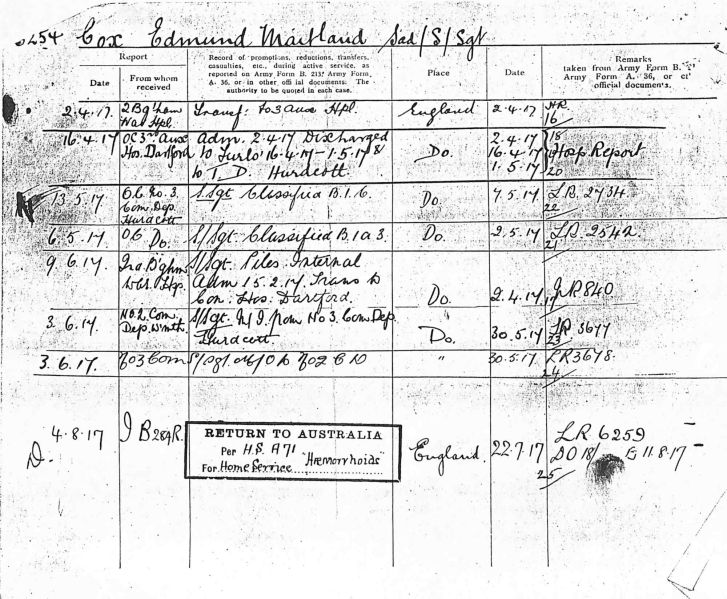 2454 Cox Edmund Maitland Sad/S/Sgt
Report
Record of promotions, reductions, transfers,
casualties, etc., during active service, as
reported on Army Form B. 213, Army Form
A. 36, or in other official documents. The
authority to be quoted in each case.
Place
Date
Remarks
taken from Army Form B.
Army Form A. 36, or
official documents.
Date
From whom
received
2.4.17
Hpl.
Transf: to 3 Aux Hpl.
England
2.4.17
16
16.4.17
OC 3rd Aux
Hos. Dartford
Adm. 2.4.17 Discharged
to Furlo' 16.4.17 - 1.5.17 &
to T. D. Hurdcott
Do.
2.4.17
16.4.17
1.5.17
18
Hosp Report
20
13.5.17
O.C. No. 3.
Com. Dep.
Hurdcott
S/Sgt Classified B.1.6.
Do.
7.5.17
LR. 2734
22
6.5.17
OC Do.
S/Sgt. Classified B.1a3.
Do.
2.5.17
LR. 2542
21
9.6.17.
S/Sgt. Piles Internal
Adm 15.2.17. Trans to
Con. Hos. Dartford.
Do.
2.4.17
840
3.6.17.
No.2. Com.
Dep.
S/Sgt. M/I. from No 3. Com Dep.
Hurdcott
Do.
30.5.17
LR 3677
23
3.6.17.
No3 Com
S/Sgt
"
30.5.17
LR 3678.
24
D.
4.8.17
RETURN TO AUSTRALIA
Per H.S. A71
For Home Service "Hæmorrhoids"
England.
22.7.17
LR 6259
DO 18/ 11.8.17
25